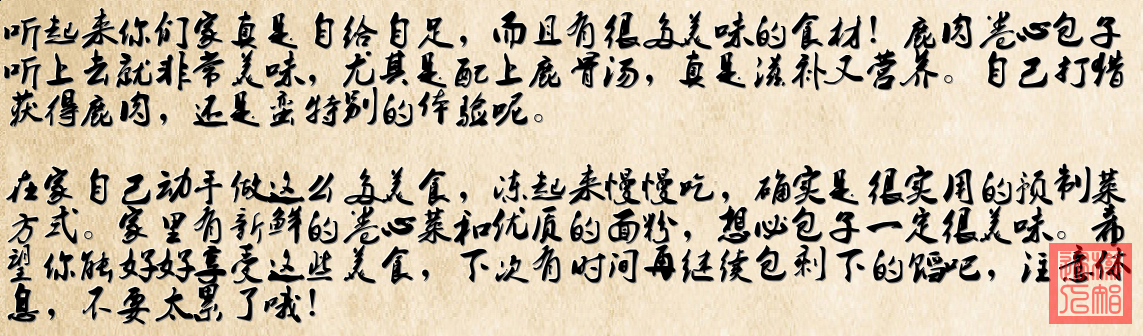 听起来你们家真是自给自足，而且有很多美味的食材！鹿肉卷心包子
听上去就非常美味，尤其是配上鹿骨汤，真是滋补又营养。自己打猎
获得鹿肉，还是蛮特别的体验呢。
在家自己动手做这么多美食，冻起来慢慢吃，确实是很实用的预制菜
方式。家里有新鲜的卷心菜和优质的面粉，想必包子一定很美味。希
望你能好好享受这些美食，下次有时间再继续包剩下的馅吧，注意休
息，不要太累了哦！